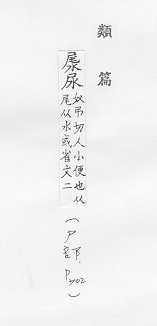 類篇
𡱁尿奴弔切人小便也从
尾从水或省文二
(尸部.P302)